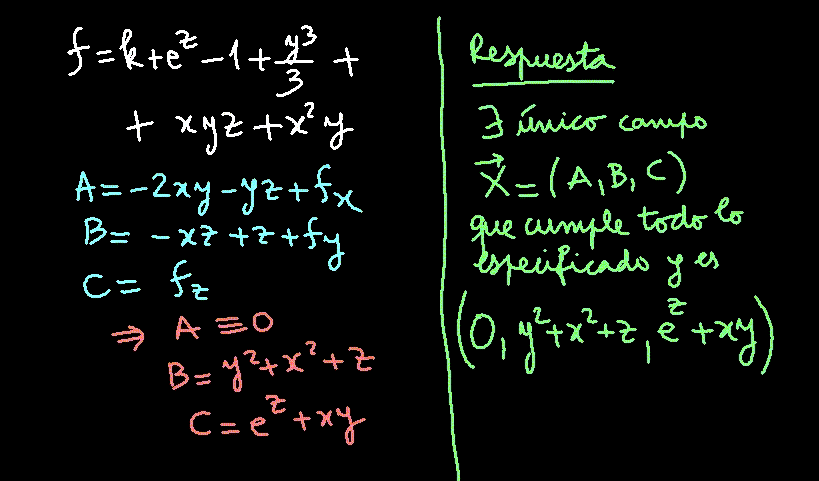 f = k + e^z - 1 + y³/3 +
+ xyz + x²y
A = -2xy - yz + fₓ
B = -xz + z + f_y
C = f_z
⇒ A ≡ 0
B = y² + x² + z
C = e^z + xy
Respuesta
∃ único campo
X⃗ = (A, B, C)
que cumple todo lo
especificado y es
(0, y² + x² + z, e^z + xy)